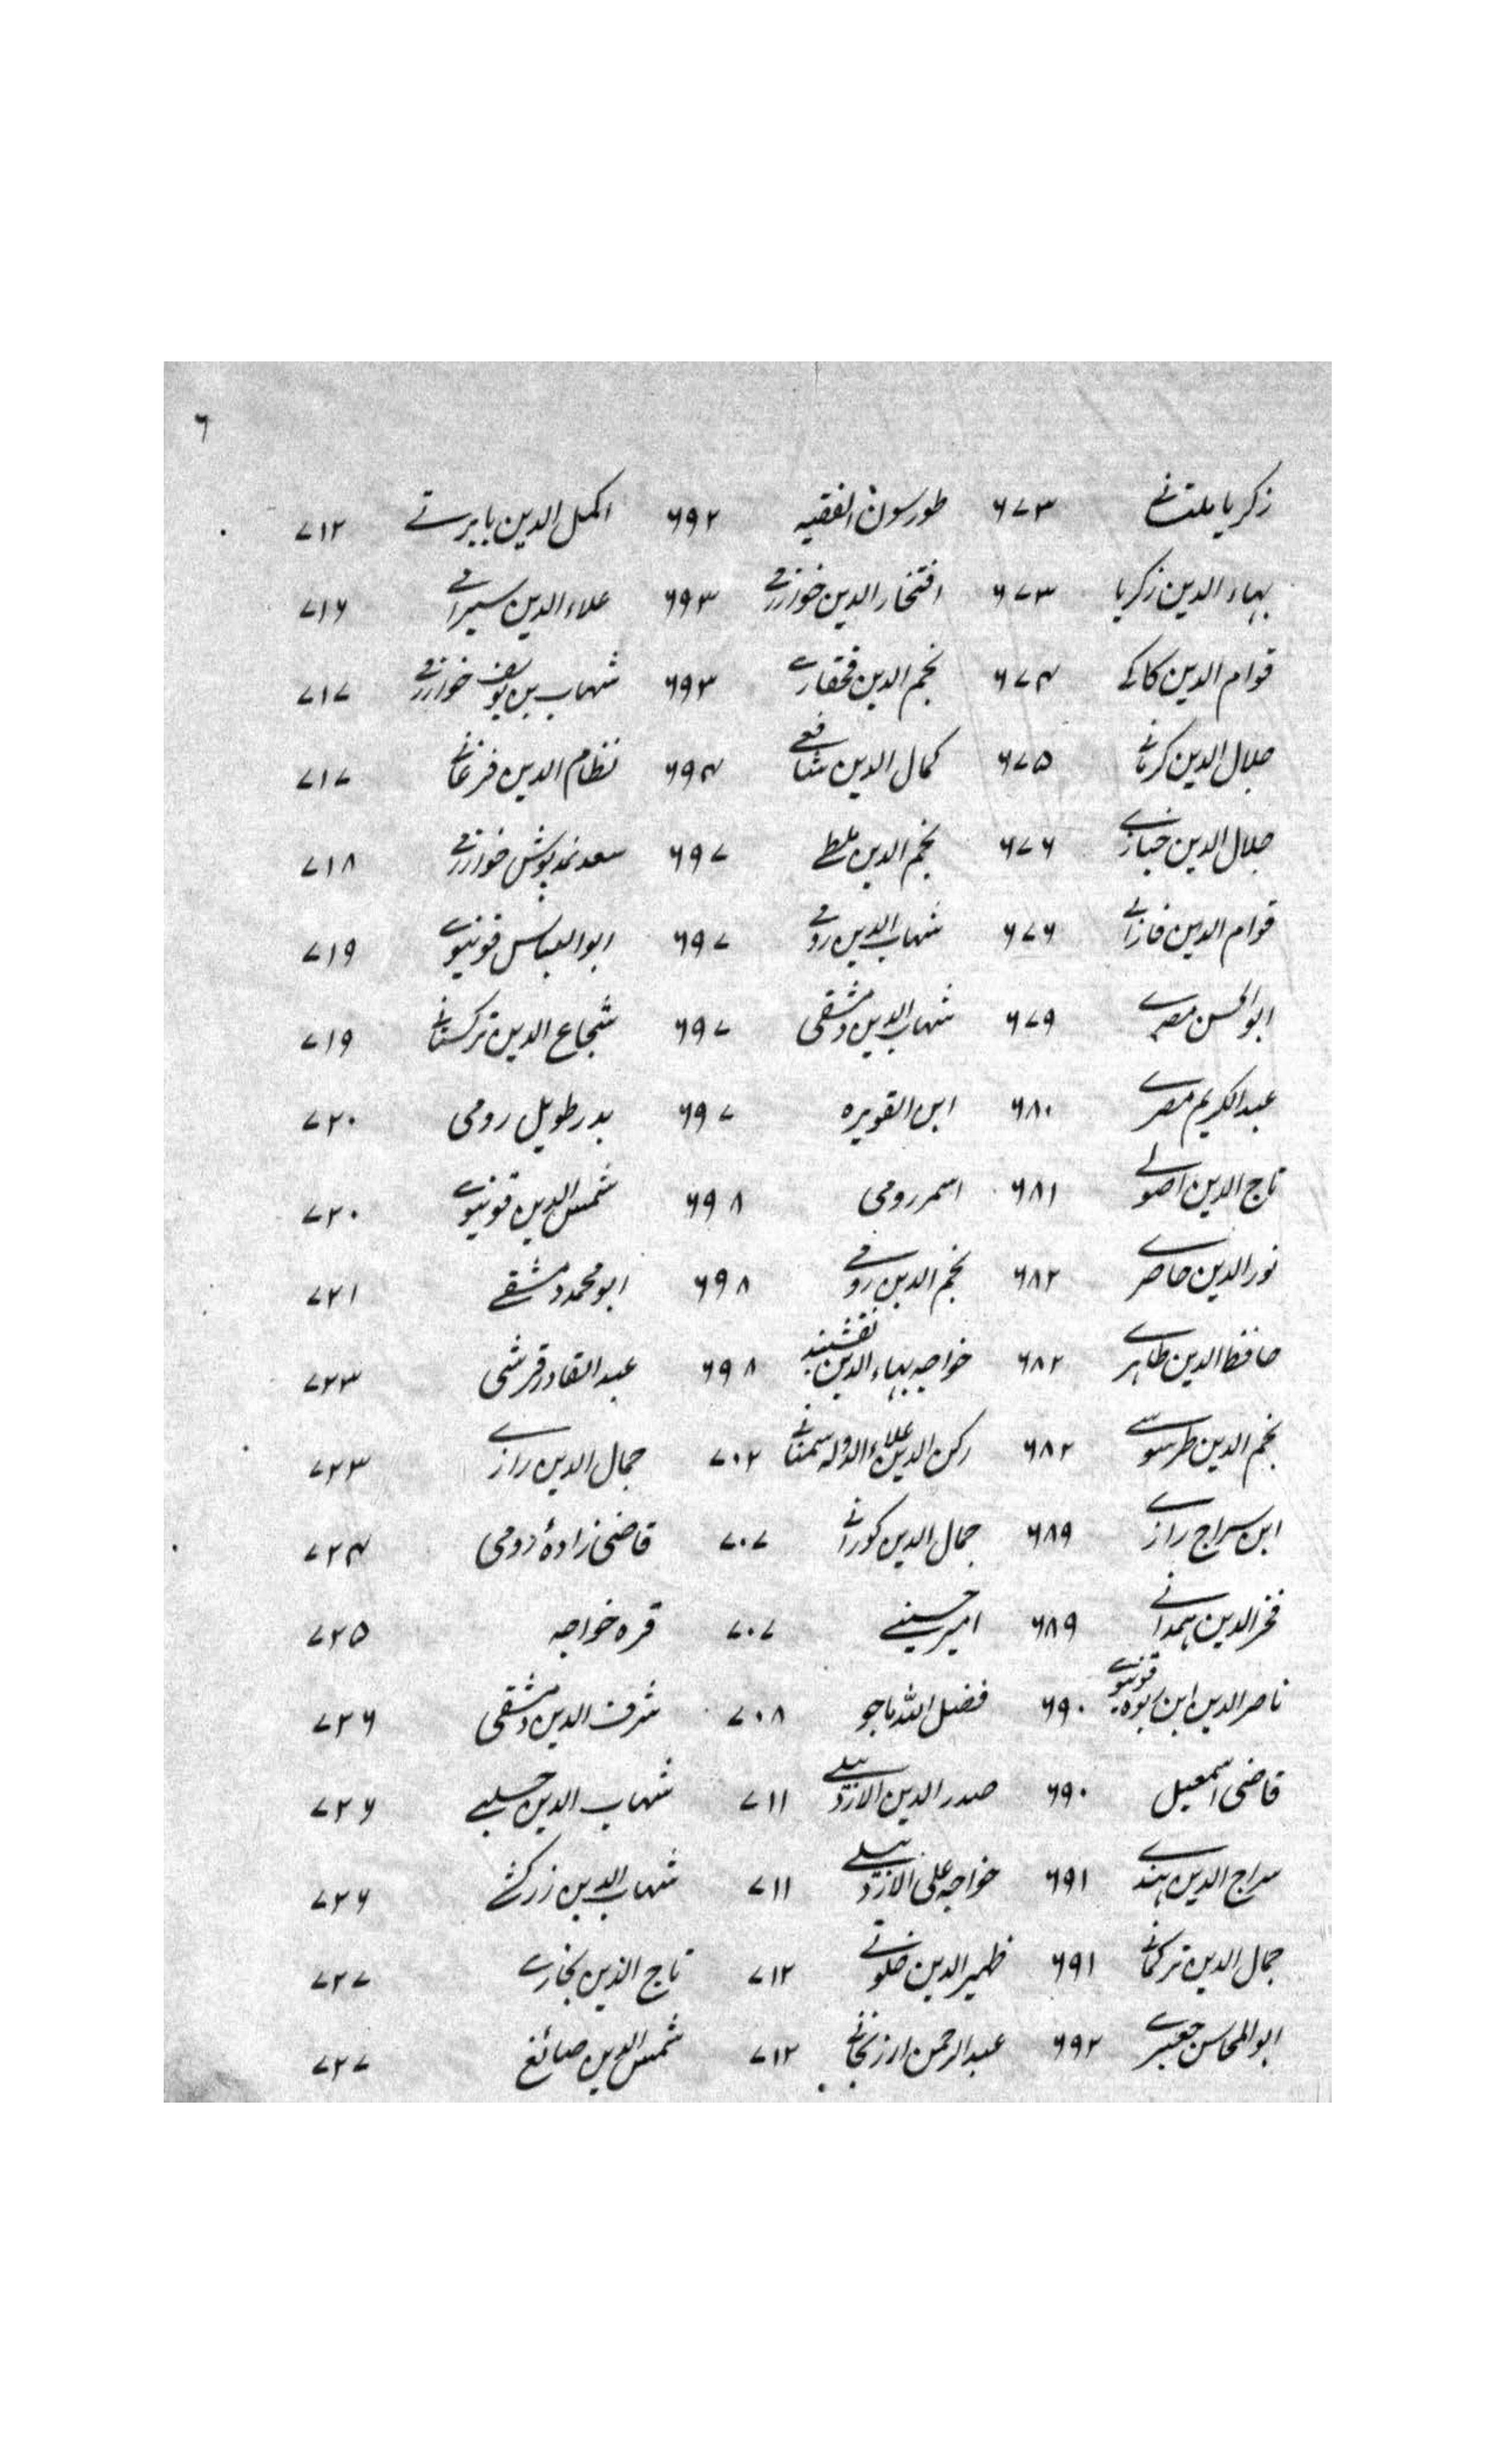 ۶
زکریا ملتانے ۶۷۳ طورسون الفقیہ ۶۹۲ اکمل الدین بابرتے ۷۱۲
بہاء الدین زکریا ۶۷۳ افتخار الدین خوارزمے ۶۹۳ علاء الدین سیرامے ۷۱۶
قوام الدین کاکے ۶۷۴ نجم الدین قحقارے ۶۹۳ شہاب بن یوسف خوارزمے ۷۱۷
جلال الدین کرمانے ۶۷۵ کمال الدین شافعے ۶۹۴ نظام الدین فرغانے ۷۱۷
جلال الدین خبازے ۶۷۶ نجم الدین ملطے ۶۹۷ سعد نمدپوش خوارزمے ۷۱۸
قوام الدین فارابے ۶۷۶ شہاب الدین رومے ۶۹۷ ابوالعباس قونیوے ۷۱۹
ابوالحسن مصرے ۶۷۹ شہاب الدین دمشقی ۶۹۷ شجاع الدین ترکستانے ۷۱۹
عبدالکریم مصرے ۶۸۰ ابن القویرہ ۶۹۷ بدر طویل رومی ۷۲۰
تاج الدین اصولے ۶۸۱ اسمر رومی ۶۹۸ شمس الدین قونیوے ۷۲۰
نورالدین حاصرے ۶۸۲ نجم الدین رومے ۶۹۸ ابومحمد دمشقے ۷۲۱
حافظ الدین طاہرے ۶۸۲ خواجہ بہاء الدین نقشبند ۶۹۸ عبدالقادر قرشی ۷۲۳
نجم الدین طرسوسے ۶۸۲ رکن الدین علاء الدولہ سمنانے ۷۰۲ جمال الدین رازے ۷۲۳
ابن سراج رازے ۶۸۹ جمال الدین کورانے ۷۰۷ قاضی زادۂ رومی ۷۲۴
فخرالدین ہمدانے ۶۸۹ امیر حسینے ۷۰۷ قرہ خواجہ ۷۲۵
ناصرالدین ابن ربوہ قونیوے ۶۹۰ فضل اللہ ماجو ۷۰۸ شرف الدین دمشقی ۷۲۶
قاضی اسمعیل ۶۹۰ صدر الدین الاردبیلے ۷۱۱ شہاب الدین حلبے ۷۲۶
سراج الدین ہندے ۶۹۱ خواجہ علی الاردبیلے ۷۱۱ شہاب الدین زرکشے ۷۲۶
جمال الدین ترکمانے ۶۹۱ ظہیر الدین خلوتے ۷۱۲ تاج الدین بخارے ۷۲۷
ابوالمحاسن جعبرے ۶۹۲ عبدالرحمن ارزنجانے ۷۱۲ شمس الدین صائغ ۷۲۷